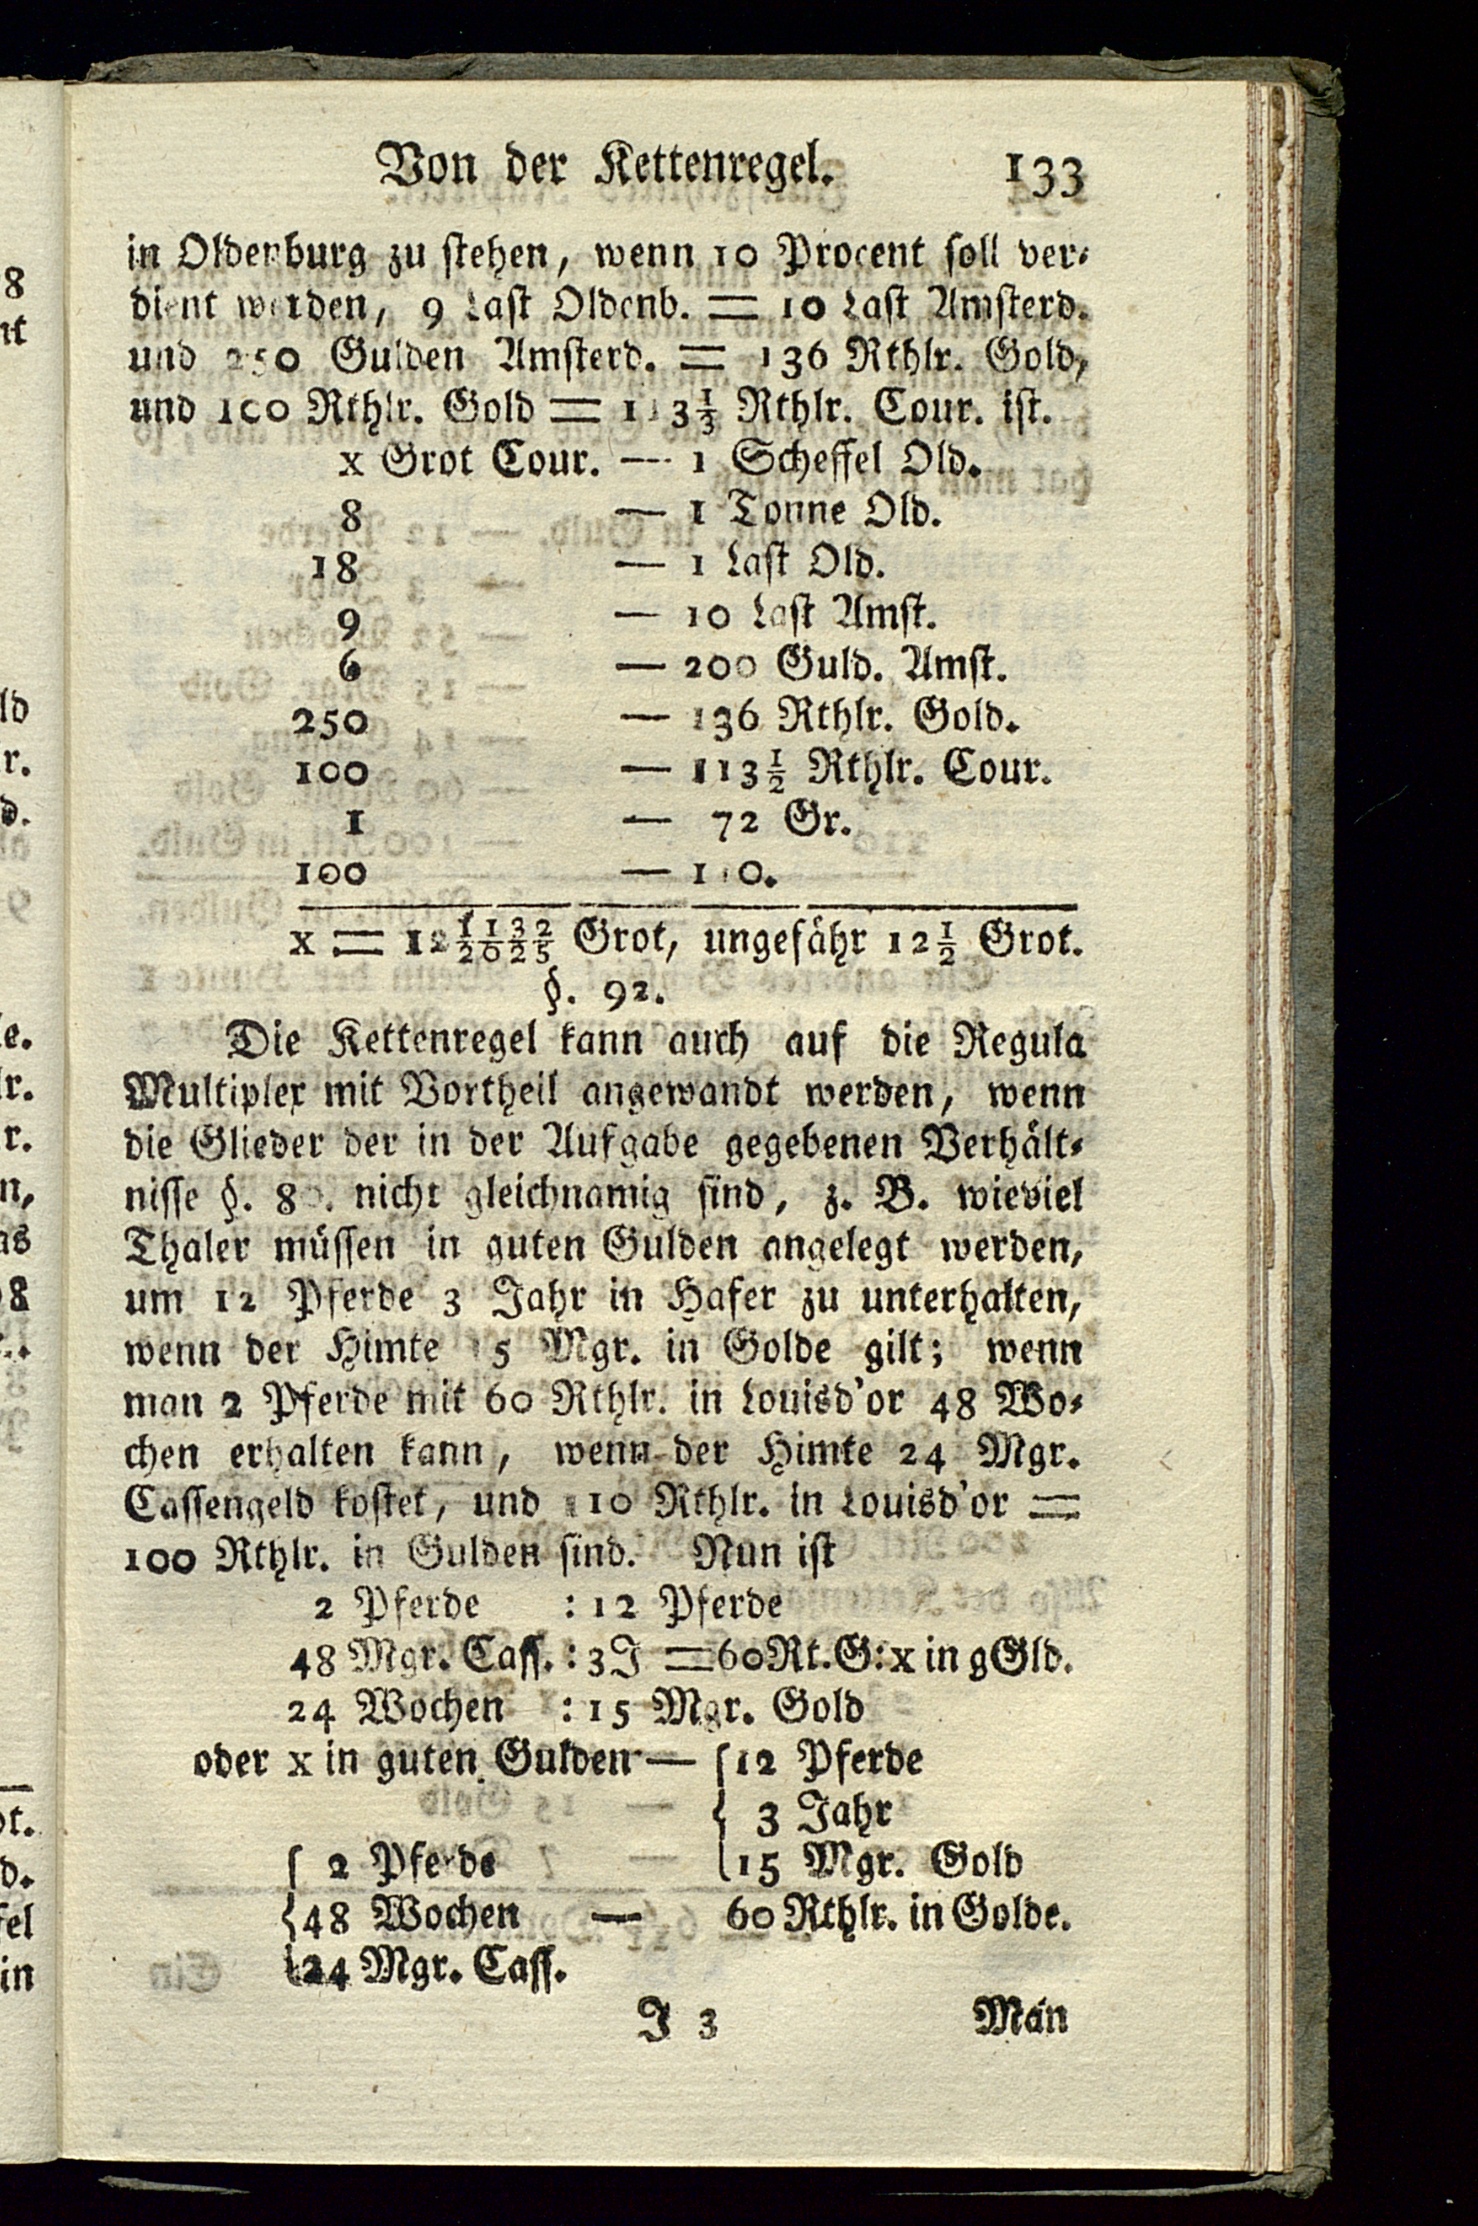 Von der Kettenregel. 133
in Oldenburg zu stehen, wenn 10 Procent soll ver⸗
dient werden, 9 Last Oldenb. = 10 Last Amsterd.
und 250 Gulden Amsterd. = 136 Rthlr. Gold,
und 100 Rthlr. Gold = 113⅓ Rthlr. Cour. ist.
x Grot Cour. — 1 Scheffel Old.
8 — 1 Tonne Old.
18 — 1 Last Old.
9 — 10 Last Amst.
6 — 200 Guld. Amst.
250 — 136 Rthlr. Gold.
100 — 113½ Rthlr. Cour.
1 — 72 Gr.
100 — 110.
x = 12 1132/2025 Grot, ungefähr 12½ Grot.
§. 92.
Die Kettenregel kann auch auf die Regula
Multiplex mit Vortheil angewandt werden, wenn
die Glieder der in der Aufgabe gegebenen Verhält⸗
nisse §. nicht gleichnamig sind, z. B. wieviel
Thaler müssen in guten Gulden angelegt werden,
um 12 Pferde 3 Jahr in Hafer zu unterhalten,
wenn der Himte 15 Mgr. in Golde gilt; wenn
man 2 Pferde mit 60 Rthlr. in Louisd'or 48 Wo⸗
chen erhalten kann, wenn der Himte 24 Mgr.
Cassengeld kostet, und 110 Rthlr. in Louisd'or =
100 Rthlr. in Gulden sind. Nun ist
2 Pferde : 12 Pferde
48 Mgr. Cass. : 3 J = 60 Rt. G : x in gGld.
24 Wochen : 15 Mgr. Gold
oder x in guten Gulden — { 12 Pferde
{ 3 Jahr
{ 2 Pferde { 15 Mgr. Gold
{ 48 Wochen — 60 Rthlr. in Golde.
{ 24 Mgr. Cass.
J 3 Man